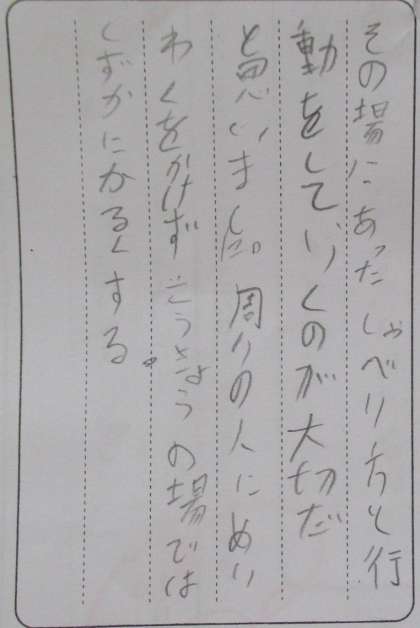 その場にあったしゃべり方と行
動をしていくのが大切だ
と思いました。周りの人にめい
わくをかけず こうきょうの場では
しずかにかるくする。